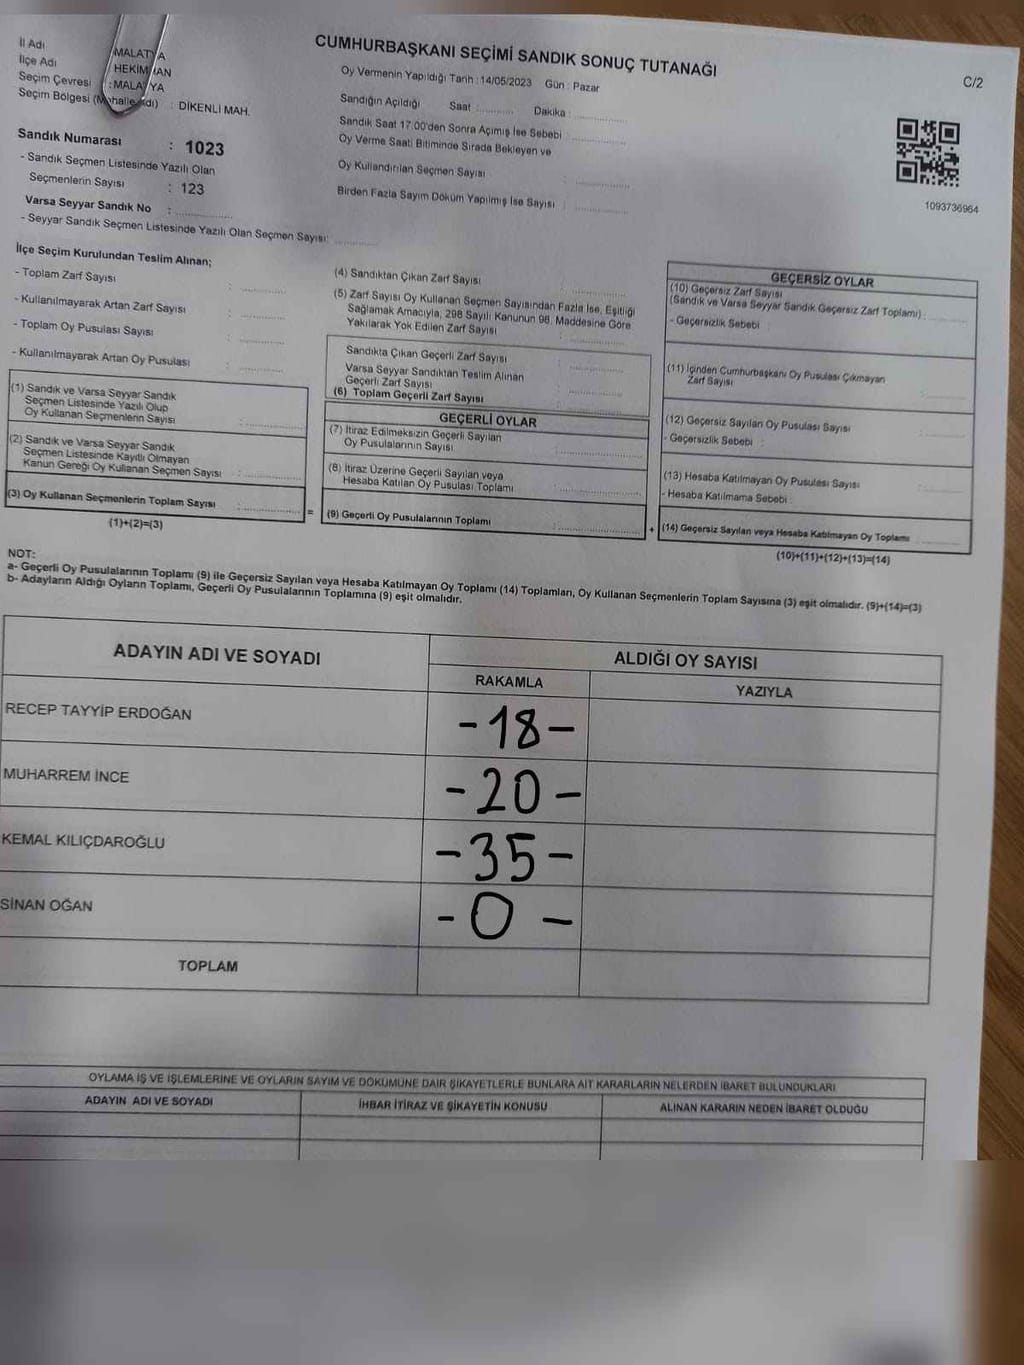 CUMHURBAŞKANI SEÇİMİ SANDIK SONUÇ TUTANAĞI
C/2
İl Adı MALATYA
İlçe Adı HEKİMHAN
Seçim Çevresi :MALATYA
Seçim Bölgesi (Mahalle Adı) : DİKENLİ MAH.
Sandık Numarası : 1023
- Sandık Seçmen Listesinde Yazılı Olan
Seçmenlerin Sayısı : 123
Varsa Seyyar Sandık No :
- Seyyar Sandık Seçmen Listesinde Yazılı Olan Seçmen Sayısı:
Oy Vermenin Yapıldığı Tarih : 14/05/2023 Gün : Pazar
Sandığın Açıldığı Saat Dakika :
Sandık Saat 17:00'den Sonra Açımış İse Sebebi :
Oy Verme Saati Bitiminde Sırada Bekleyen ve
Oy Kullandırılan Seçmen Sayısı :
Birden Fazla Sayım Döküm Yapılmış İse Sayısı :
1093736964
İlçe Seçim Kurulundan Teslim Alınan;
- Toplam Zarf Sayısı :
- Kullanılmayarak Artan Zarf Sayısı :
- Toplam Oy Pusulası Sayısı :
- Kullanılmayarak Artan Oy Pusulası :
(1) Sandık ve Varsa Seyyar Sandık
Seçmen Listesinde Yazılı Olup
Oy Kullanan Seçmenlerin Sayısı :
(2) Sandık ve Varsa Seyyar Sandık
Seçmen Listesinde Kayıtlı Olmayan
Kanun Gereği Oy Kullanan Seçmen Sayısı :
(3) Oy Kullanan Seçmenlerin Toplam Sayısı :
(1)+(2)=(3)
=
(4) Sandıktan Çıkan Zarf Sayısı :
(5) Zarf Sayısı Oy Kullanan Seçmen Sayısından Fazla İse, Eşitliği
Sağlamak Amacıyla, 298 Sayılı Kanunun 98. Maddesine Göre
Yakılarak Yok Edilen Zarf Sayısı :
Sandıkta Çıkan Geçerli Zarf Sayısı :
Varsa Seyyar Sandıktan Teslim Alınan
Geçerli Zarf Sayısı :
(6) Toplam Geçerli Zarf Sayısı :
GEÇERLİ OYLAR
(7) İtiraz Edilmeksizin Geçerli Sayılan
Oy Pusulalarının Sayısı :
(8) İtiraz Üzerine Geçerli Sayılan veya
Hesaba Katılan Oy Pusulası Toplamı :
(9) Geçerli Oy Pusulalarının Toplamı :
+
GEÇERSİZ OYLAR
(10) Geçersiz Zarf Sayısı
(Sandık ve Varsa Seyyar Sandık Geçersiz Zarf Toplamı) :
- Geçersizlik Sebebi :
(11) İçinden Cumhurbaşkanı Oy Pusulası Çıkmayan
Zarf Sayısı :
(12) Geçersiz Sayılan Oy Pusulası Sayısı :
- Geçersizlik Sebebi :
(13) Hesaba Katılmayan Oy Pusulası Sayısı :
- Hesaba Katılmama Sebebi :
(14) Geçersiz Sayılan veya Hesaba Katılmayan Oy Toplamı :
(10)+(11)+(12)+(13)=(14)
NOT:
a- Geçerli Oy Pusulalarının Toplamı (9) ile Geçersiz Sayılan veya Hesaba Katılmayan Oy Toplamı (14) Toplamları, Oy Kullanan Seçmenlerin Toplam Sayısına (3) eşit olmalıdır. (9)+(14)=(3)
b- Adayların Aldığı Oyların Toplamı, Geçerli Oy Pusulalarının Toplamına (9) eşit olmalıdır.
ADAYIN ADI VE SOYADI
ALDIĞI OY SAYISI
RAKAMLA YAZIYLA
RECEP TAYYİP ERDOĞAN -18-
MUHARREM İNCE -20-
KEMAL KILIÇDAROĞLU -35-
SİNAN OĞAN -0-
TOPLAM
OYLAMA İŞ VE İŞLEMLERİNE VE OYLARIN SAYIM VE DÖKÜMÜNE DAİR ŞİKAYETLERLE BUNLARA AİT KARARLARIN NELERDEN İBARET BULUNDUKLARI
ADAYIN ADI VE SOYADI İHBAR İTİRAZ VE ŞİKAYETİN KONUSU ALINAN KARARIN NEDEN İBARET OLDUĞU